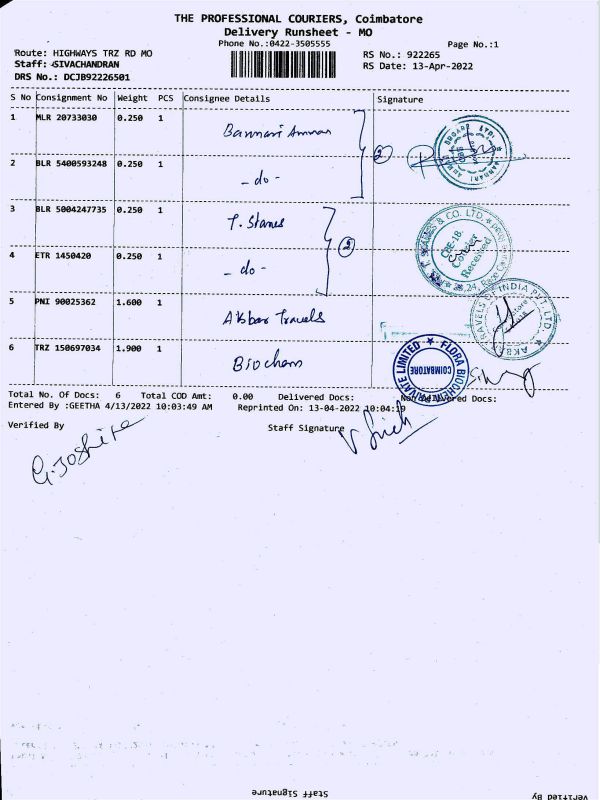 THE PROFESSIONAL COURIERS, Coimbatore
Delivery Runsheet - MO
Phone No.:0422-3505555
Page No.:1
Route: HIGHWAYS TRZ RD MO
RS No.: 922265
Staff: SIVACHANDRAN
RS Date: 13-Apr-2022
DRS No.: DCJB92226501
S No Consignment No Weight PCS Consignee Details Signature
1 MLR 20733030 0.250 1 Bannari Amman
2 BLR 5400593248 0.250 1 - do - 2
3 BLR 5004247735 0.250 1 T. Stanes
4 ETR 1450420 0.250 1 - do - 2
5 PNI 90025362 1.600 1 Akbar Travels
6 TRZ 150697034 1.900 1 Biochem
CBE-18.
Courier
Received
AKBAR TRAVELS OF INDIA PVT. LTD.
FLORA
PRIVATE LIMITED
COIMBATORE
Total No. Of Docs: 6 Total COD Amt: 0.00 Delivered Docs: Non Delivered Docs:
Entered By :GEETHA 4/13/2022 10:03:49 AM Reprinted On: 13-04-2022 10:04:19
Verified By Staff Signature
Staff Signature
Verified By